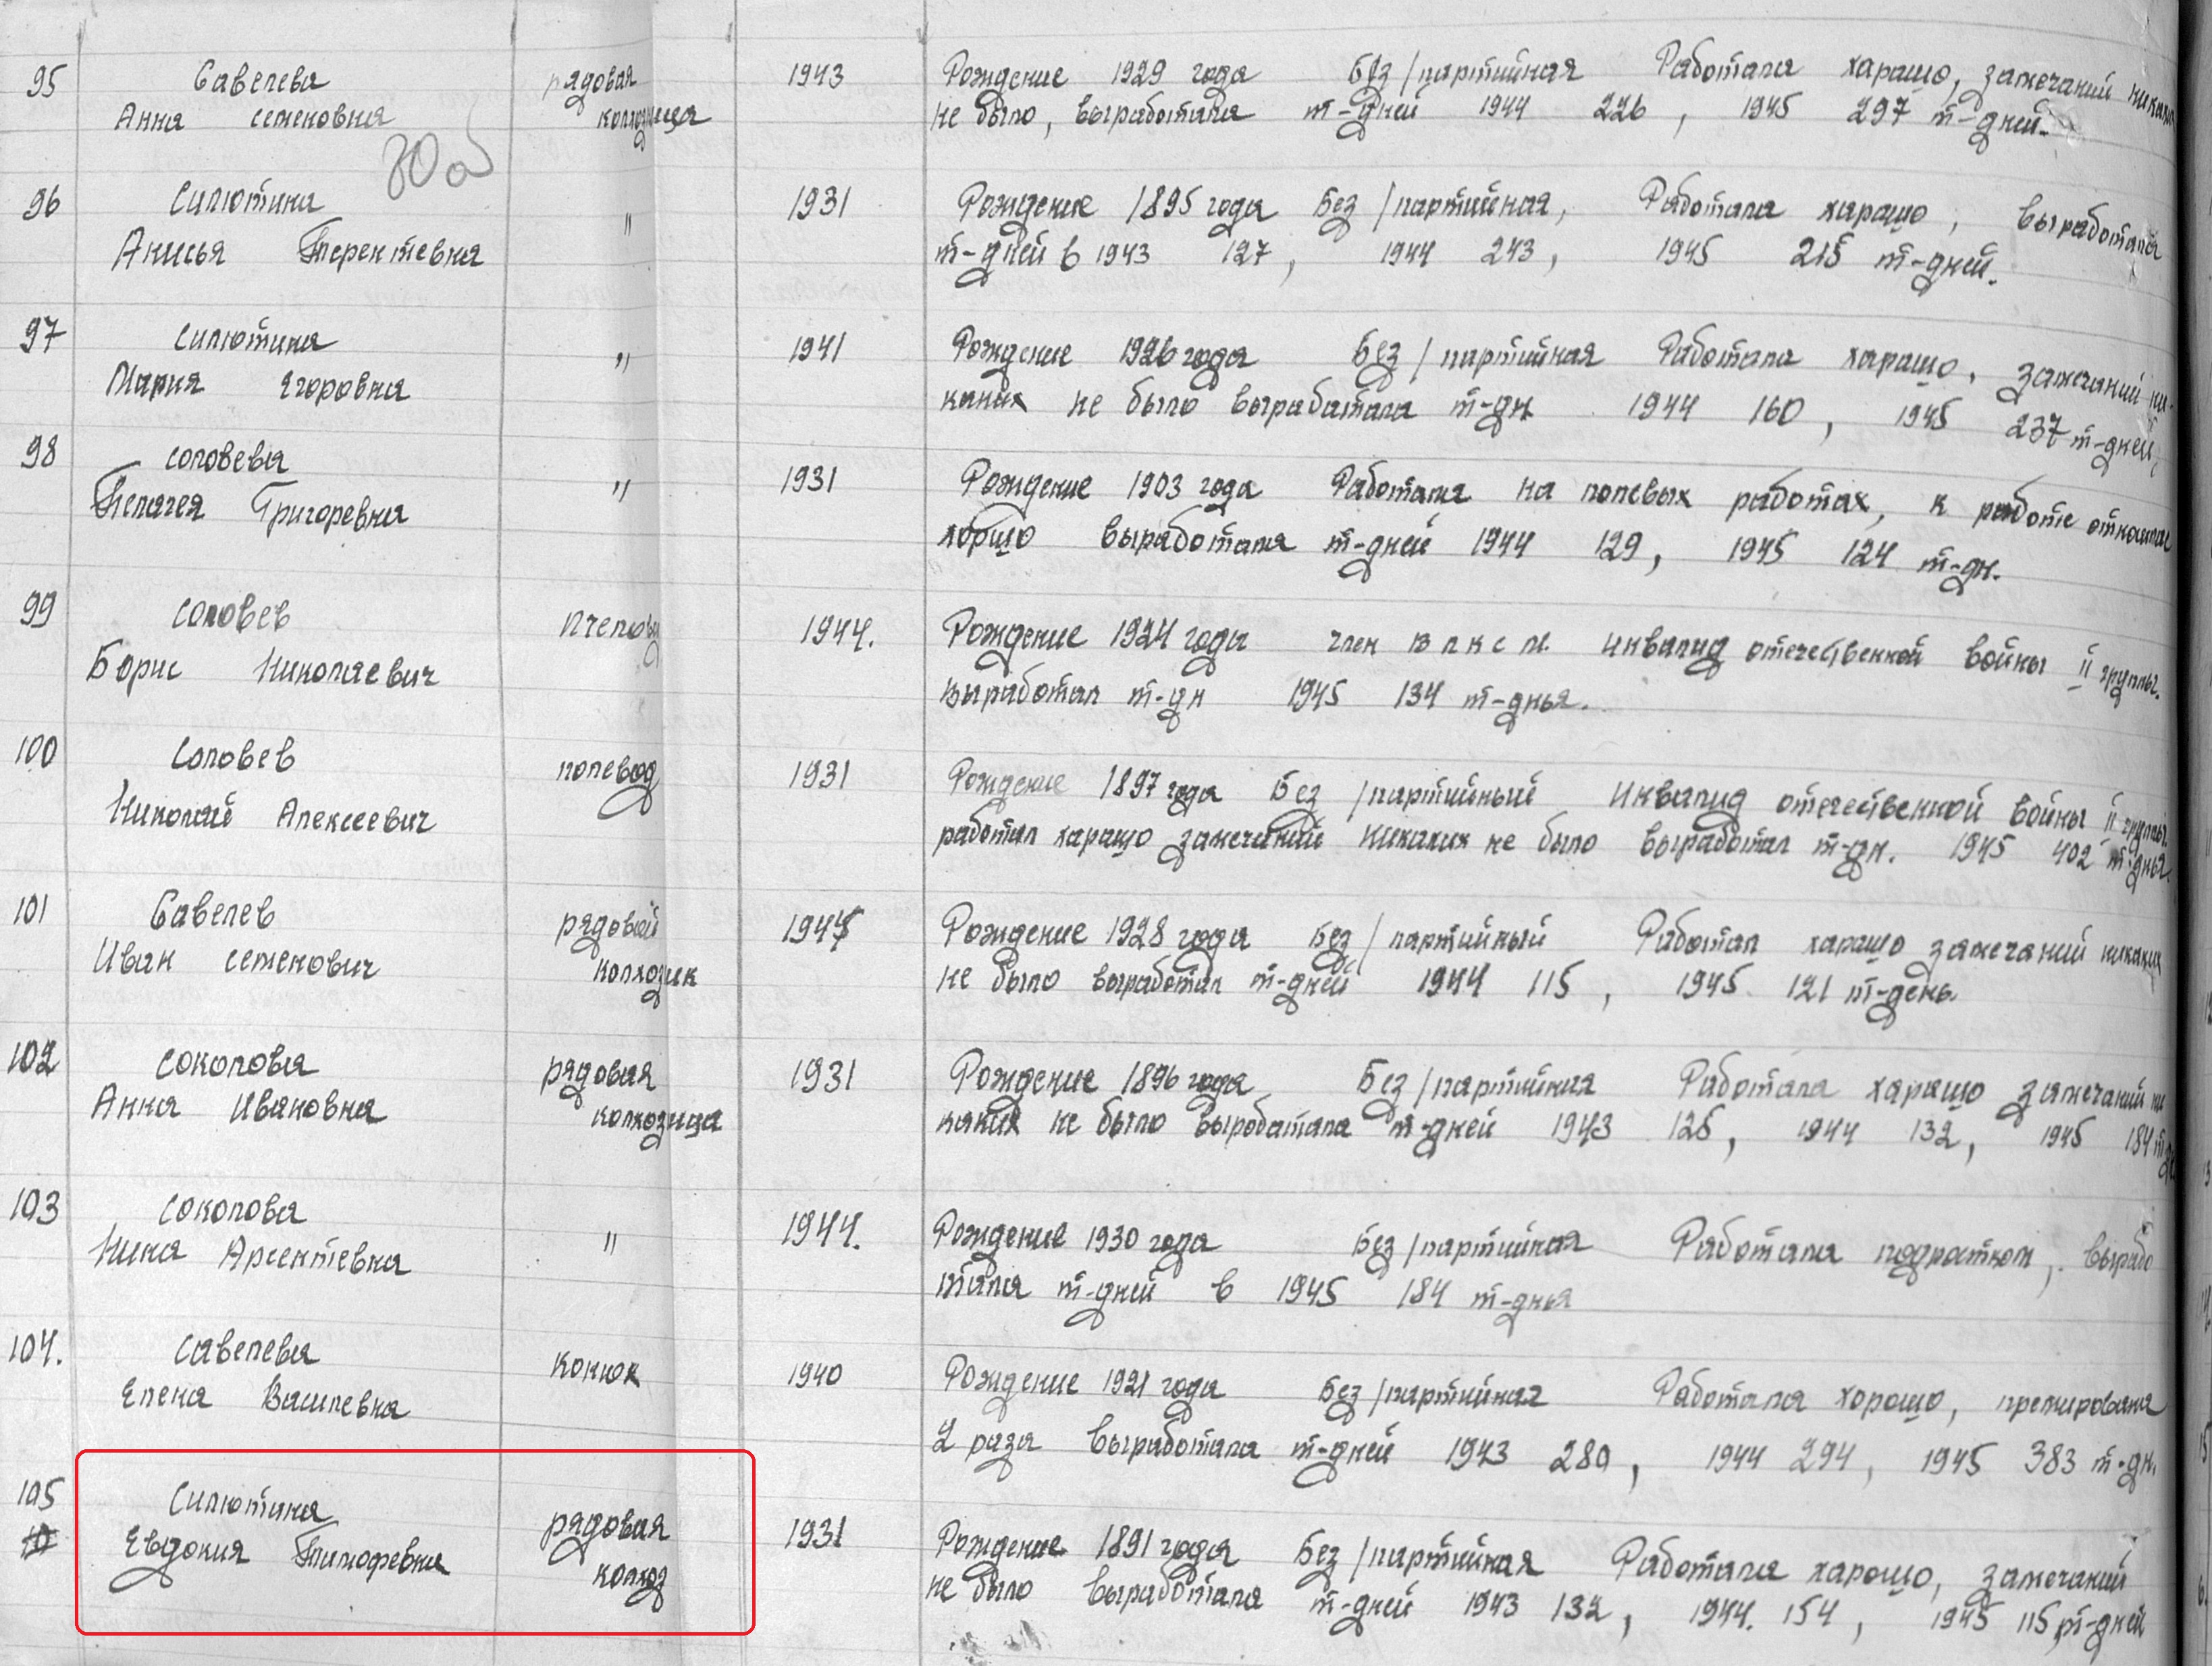 95 Савелева рядовая 1943 Рождение 1929 года Без/партийная Работала харашо, замечаний никаких
Анна семеновна колхозница не было, выработала т-дней 1944 226, 1945 297 т-дней.
80 об
96 Силютина " 1931 Рождение 1895 года Без/партийная, Работала харашо, выработала
Анисья Терентевна т-дней в 1943 127, 1944 243, 1945 215 т-дней.
97 Силютина " 1941 Рождение 1926 года Без/партийная Работала харашо, замечаний ни-
Мария Егоровна каких не было вырабатала т-дн 1944 160, 1945 237 т-дней,
98 соловева " 1931 Рождение 1903 года Работала на полевых работах, к работе
Пелагея Григоревна хоршо выработала т-дней 1944 129, 1945 124 т-дн.
99 соловев пчеловд 1944. Рождение 1924 года член влксм. инвалид отечественной войны II группы.
Борис Николаевич выработал т-дн 1945 134 т-дня.
100 Соловев полевод 1931 Рождение 1897 года Без/партийный инвалид отечественной войны II группы.
Николай Алексеевич работал харашо замечаний никаких не было выработал т-дн. 1945 402 т-дня.
101 Савелев рядовой 1944 Рождение 1928 года Без/партийный Работал харашо замечаний никаких
Иван семенович колхозник не было выработал т-дней 1944 115, 1945 121 т-день.
102 соколова рядовая 1931 Рождение 1896 года Без/партийная Работала харашо замечаний ни
Анна Ивановна колхозница каких не было выробатала т-дней 1943 125, 1944 132, 1945 184
103 соколова " 1944. Рождение 1930 года Без/партийная Работала подратком, вырабо
Нина Арсентевна тала т-дней в 1945 184 т-дня
104. савелева конюх 1940 Рождение 1921 года Без/партийная Работала хорошо, премирована
Елена Василевна 2 раза выработала т-дней 1943 280, 1944 294, 1945 383 т-дн.
105 Силютина рядовая 1931 Рождение 1891 года Без/партийная Работала харошо, замечаний
Евдокия Тимофевна колхоз не было выработала т-дней 1943 132, 1944. 154, 1945 115 т-дней